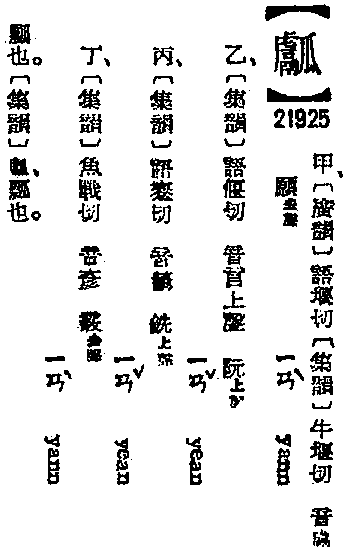 【】
21925
甲、〔廣韻〕語堰切〔集韻〕牛堰切 音
願去聲 ㄧㄢˋ yann
乙、〔集韻〕語偃切 音言上聲 阮上聲 ㄧㄢˇ yean
丙、〔集韻〕語蹇切 音 銑上聲 ㄧㄢˇ yean
丁、〔集韻〕魚戰切 音彥 霰去聲 ㄧㄢˋ yann
瓢也。〔集韻〕、瓢也。